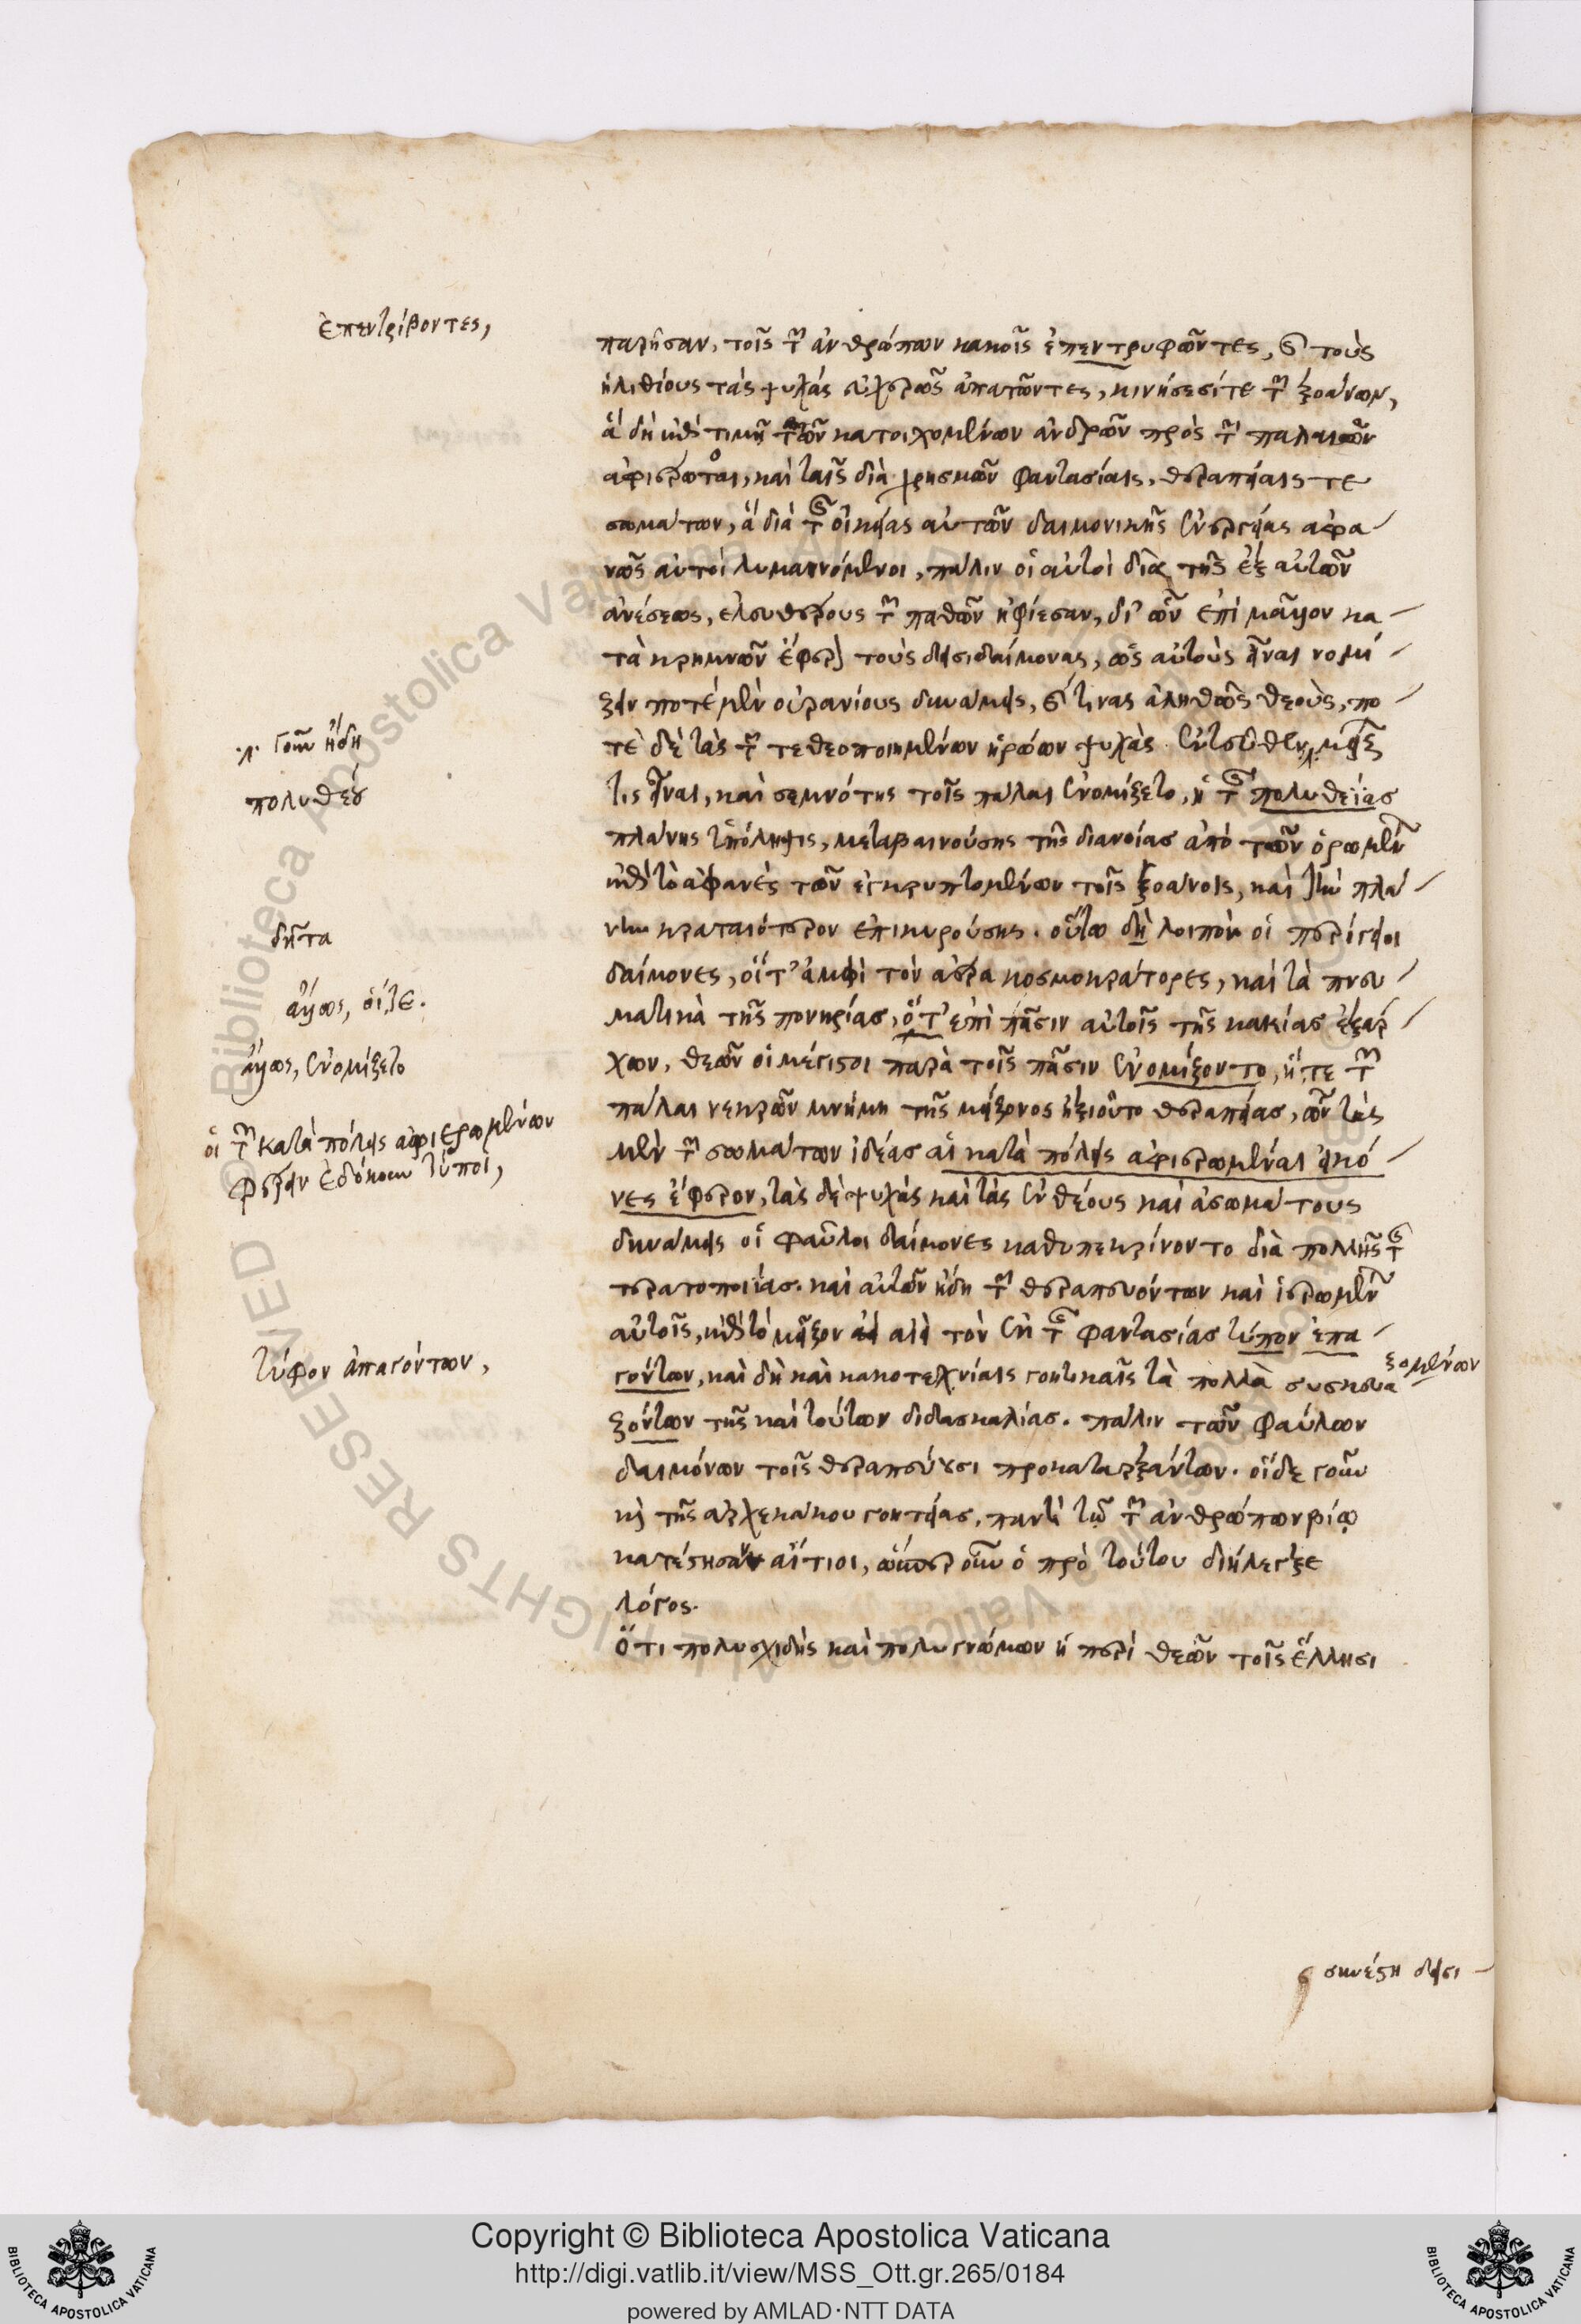 ἐπεντρίβοντες,
παρῆσαν, τοῖς τῶν ἀνθρώπων κακοῖς ἐπεντρυφῶντες, καὶ τοὺς
ἠλιθίους τὰς ψυχὰς εὐχερῶς ἀπατῶντες, κινήσεσί τε τῶν ξοάνων,
ἃ δὴ ἐπὶ τιμῇ τῶν κατοιχομένων ἀνδρῶν πρὸς τῶν παλαιῶν
ἀφιέρωτο, καὶ ταῖς διὰ χρησμῶν φαντασίαις, θεραπείαις τε
σωμάτων, ἃ διὰ τῆς οἰκείας αὐτῶν δαιμονικῆς ἐνεργείας ἀφα
νῶς αὐτοὶ λυμαινόμενοι, πάλιν οἱ αὐτοὶ διὰ τῆς ἐξ αὐτῶν
ἀνέσεως, ἐλευθέρους τῶν παθῶν ἠφίεσαν, δι' ὧν ἐπὶ μᾶλλον κα
τὰ κρημνῶν ἔφερον τοὺς δεισιδαίμονας, ὡς αὐτοὺς εἶναι νομί
ζειν ποτὲ μὲν οὐρανίους δυνάμεις, καί τινας ἀληθῶς θεοὺς, πο
τὲ δὲ τὰς τῶν τεθεοποιημένων ἡρώων ψυχὰς. ἐντεῦθεν μείζων
λ. γοῦν ἤδη
τις εἶναι, καὶ σεμνότης τοῖς πάλαι ἐνομίζετο, ἡ τῆς πολυθεΐας
πολυθέου
πλάνης ὑπόληψις, μεταβαινούσης τῆς διανοίας ἀπὸ τῶν ὁρωμένων
ἐπὶ τὸ ἀφανὲς τῶν ἐγκρυπτομένων τοῖς ξοάνοις, καὶ τὴν πλά
νην κραταιότερον ἐπικυρούσης. οὕτω δὴ λοιπὸν οἱ περίγειοι
δῆτα
δαίμονες, οἵ τ' ἀμφὶ τὸν ἀέρα κοσμοκράτορες, καὶ τὰ πνευ
ματικὰ τῆς πονηρίας, ὅ τ' ἐπὶ πᾶσιν αὐτοῖς τῆς κακίας ἐξάρ
ἄλλως, οἵ τε.
χων, θεῶν οἱ μέγιστοι παρὰ τοῖς πᾶσιν ἐνομίζοντο, ἥ τε τῶν
ἄλλως, ἐνομίζετο
πάλαι νεκρῶν μνήμη τῆς μείζονος ἠξιοῦτο θεραπείας, ὧν τὰς
μὲν τῶν σωμάτων ἰδέας αἱ κατὰ πόλεις ἀφιερωμέναι εἰκό
οἱ τῶν κατὰ πόλεις ἀφιερωμένων
φέρειν ἐδόκουν τύποι,
νες ἔφερον, τὰς δὲ ψυχὰς καὶ τὰς ἐνθέους καὶ ἀσωμάτους
δυνάμεις οἱ φαῦλοι δαίμονες καθυπεκρίνοντο διὰ πολλῆς τῆς
τερατοποιΐας. καὶ αὐτῶν ἤδη τῶν θεραπευόντων καὶ ἱερωμένων
αὐτοῖς, ἐπὶ τὸ μεῖζον ἀεὶ τὸν ἐκ τῆς φαντασίας τύπον ἐπα
γόντων, καὶ δὴ καὶ κακοτεχνίαις γοητικαῖς τὰ πολλὰ συσκευα
ζομένων
τύφον ἀπαγόντων,
ζόντων τῆς καὶ τούτων διδασκαλίας. πάλιν τῶν φαύλων
δαιμόνων τοῖς θεραπεύουσι προκαταρξάντων. οἵδε γοῦν
καὶ τῆς ἀρχεκάκου γοητείας, παντὶ τῷ τῶν ἀνθρώπων βίῳ
κατέστησαν αἴτιοι, ὥσπερ οὖν ὁ πρὸ τούτου διήλεγξε
λόγος.
Ὅτι πολυσχιδὴς καὶ πολυγνώμων ἡ περὶ θεῶν τοῖς ἕλλησι
συνέστη δεισι
© Biblioteca Apostolica Vaticana ALL RIGHTS RESERVED
Copyright © Biblioteca Apostolica Vaticana
http://digi.vatlib.it/view/MSS_Ott.gr.265/0184
powered by AMLAD·NTT DATA
BIBLIOTECA APOSTOLICA VATICANA
BIBLIOTECA APOSTOLICA VATICANA